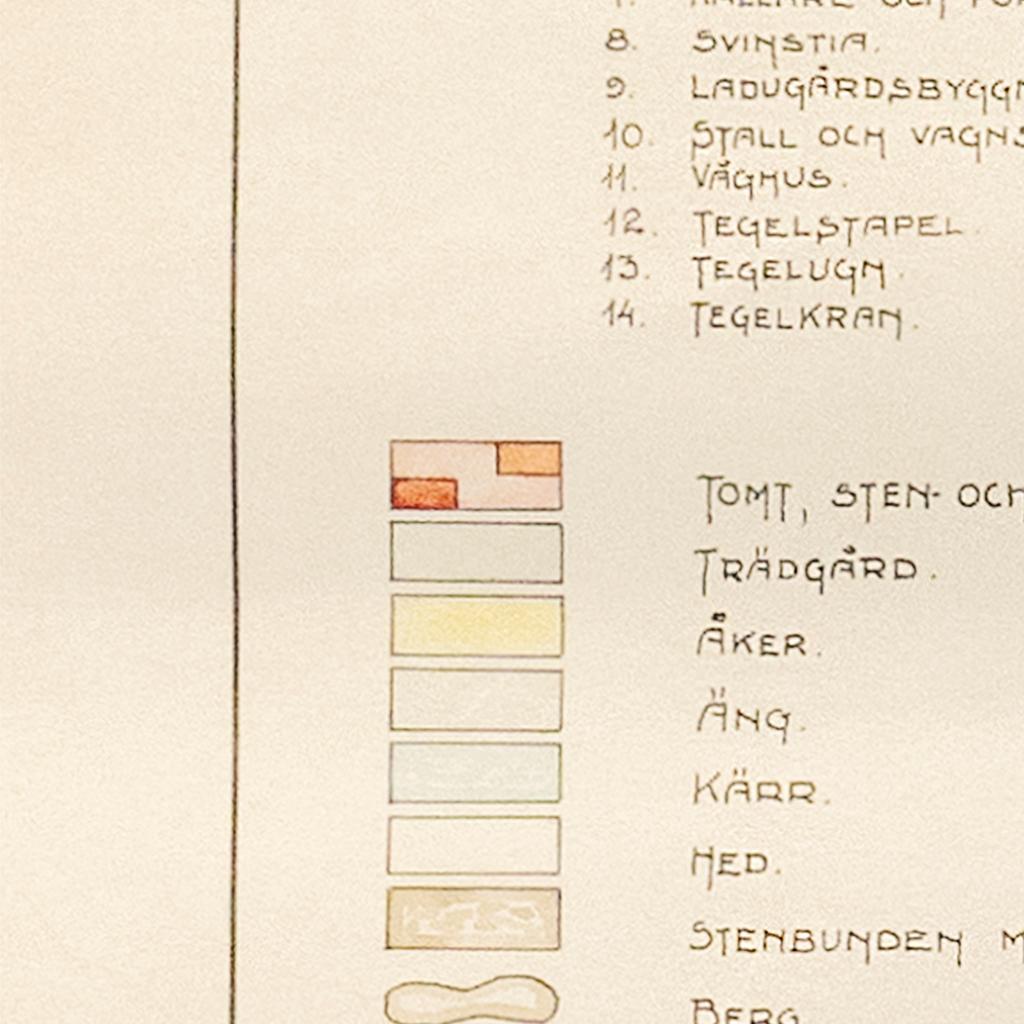 8. SVINSTIA.
9. LADUGÅRDSBYGGN
10. STALL OCH VAGNS
11. VÅGHUS.
12. TEGELSTAPEL.
13. TEGELUGN.
14. TEGELKRAN.
TOMT, STEN- OCH
TRÄDGÅRD.
ÅKER.
ÄNG.
KÄRR.
HED.
STENBUNDEN M
BERG